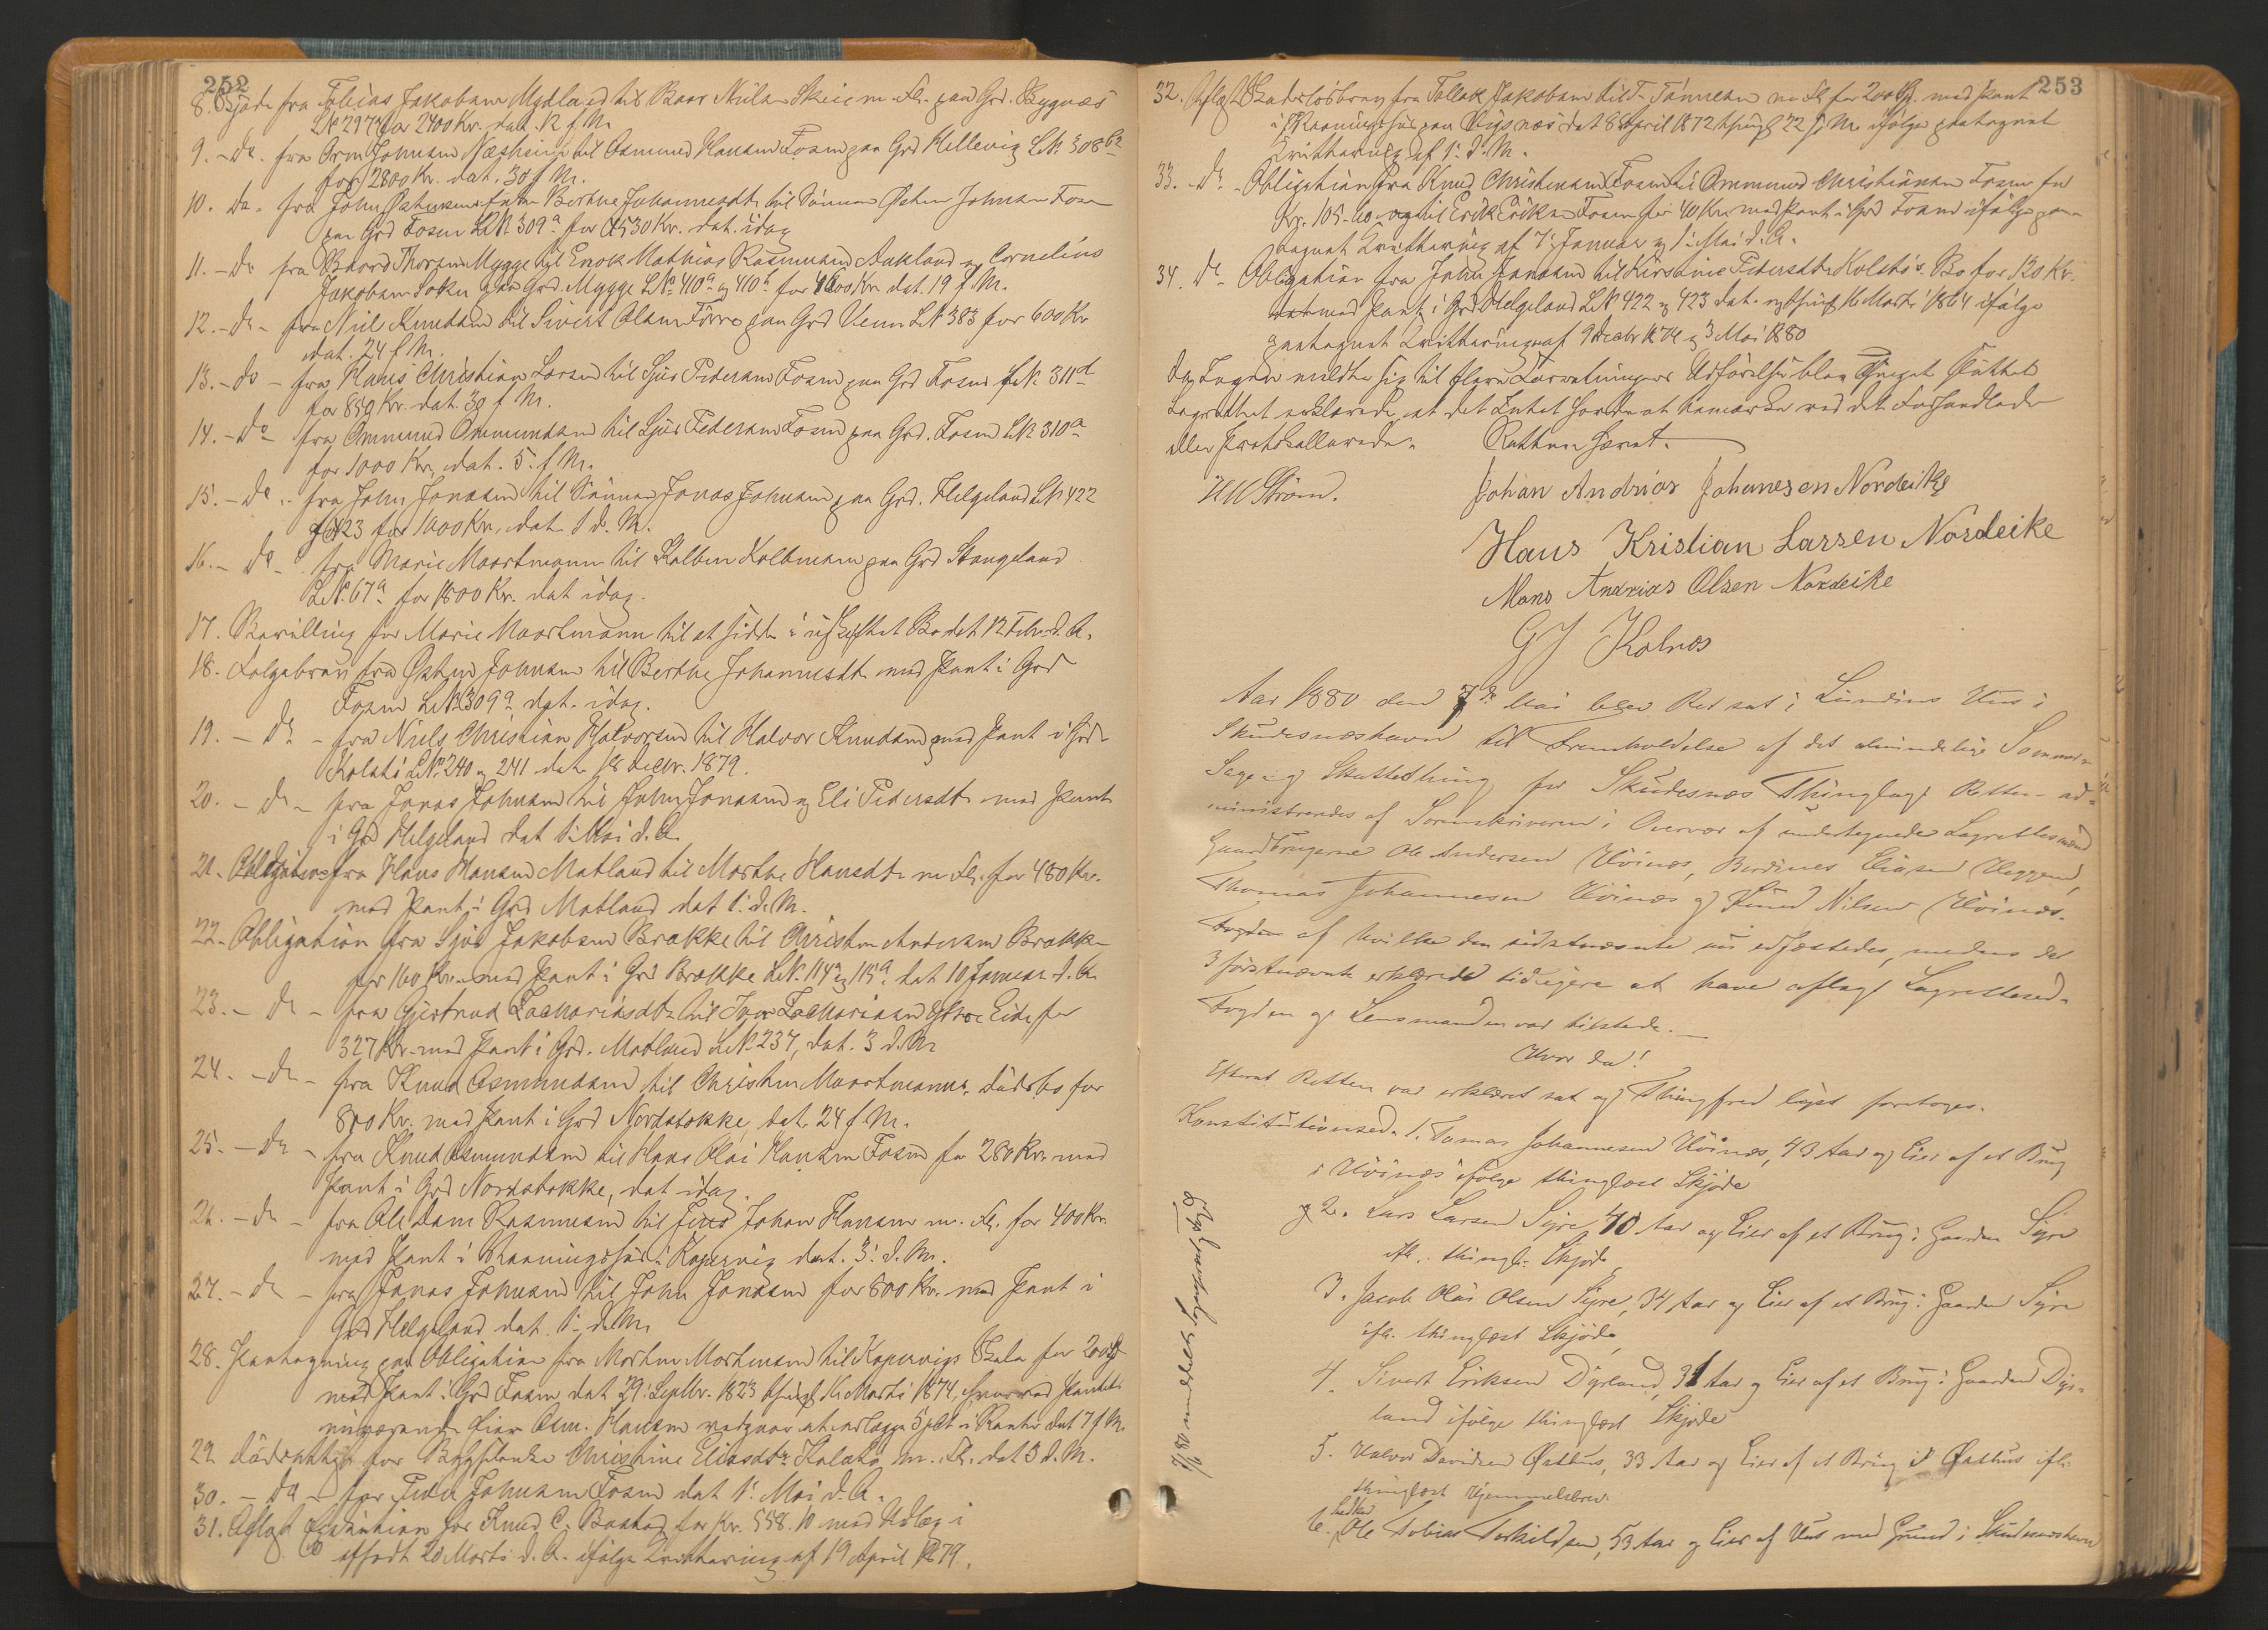 252
8. Skjøde fra Tobias Jakobsen Mydland til Baar Nilsen Skeie m. Fl. paa Grd. Bygnæs
LN 297 for 2400 Kr. dat. 12 f. M.
9. - do. fra Orm Johnsen Næsheim til Osmund Hansen Fosen paa Grd Hellevig LN. 308
for 2800 Kr. dat. 30 f. M.
10. do. fra John Østensens Enke Berthe Johannesdtr til Sønnen Østen Johnsen Fosen
paa Grd Fosen LN 309a for 1530 Kr. dat. idag
11. - do fra Baard Thorsen Mygge til Enok Mathias Rasmussen Aakland og Cornelius
Jakobsen Sokn paa Grd. Mygge LNo 410a og 410b for 1600 Kr dat. 19 f. M.
12. - do - fra Niels Knudsen til Sivert Olsen Førre paa Grd Veum LN 383 for 600 Kr
dat. 24 f. M.
13. - do - fra Hans Christian Larsen til Sjur Pedersen Fosen paa Grd Fosen LN. 311d
for 850 Kr. dat. 30 f. M.
14. - do fra Ommund Ommundsen til Sjur Pedersen Fosen paa Grd. Fosen LN 310a
for 1000 Kr, dat. 5. f. M.
15. - do - fra John Jonassen til Sønnen Jonas Johnsen paa Grd. Helgeland LN 422
og 423 for 1600 Kr, dat. 1 d. M.
16. - do - fra Marie Maartmann til Kolben Kolbensen paa Grd Stangeland
LN. 67a for 1800 Kr. dat idag.
17. Bevilling for Marie Maartmann til at sidde i uskiftet Bo dat 12 Febr. d. A.
18. Folgebrev fra Østen Johnsen til Berthe Johannesdtr med Pant i Grd
Fosen LN 309a dat. idag.
19. - do - fra Niels Christian Halvorsen til Halvor Knudsen med Pant i Grd
Kolstø LN. 240 og 241 dat. 18 Decbr. 1879.
20. - do - fra Jonas Johnsen til John Jonassen og Eli Pedersdtr med Pant
i Grd Helgeland dat 1. Mai d. A.
21. Obligation fra Hans Hansen Matland til Marthe Hansdtr m. Fl. for 480 Kr.
med Pant i Grd Matland dat 1. d. M.
22. Obligation fra Sjur Jakobsen Brække til Christen Andersen Brække
for 160 Kr. med Pant i Grd Brække LN. 114a og 115a dat 10 Januar d. A.
23. - do - fra Gjertrud Zachariasdtr til Zacharias Eide for
327 Kr. med Pant i Grd. Matland LN. 237, dat. 3 d. M
24. - do - fra Knud Asmundsen til Christen Maartmanns Dødsbo for
800 Kr. med Pant i Grd Nordstokke dat. 24 f. M.
25. - do - fra Knud Asmundsen til Hans Olai Hansen Fosen for 280 Kr. med
Pant i Grd Nordstokke, dat idag.
26. - do - fra Ole Adam Rasmussen til Jens Johan Hansen m. Fl. for 400 Kr.
med Pant i Vaaningshus i Kopervig dat. 3. d. M.
27. - do - fra Jonas Johnsen til John Jonassen for 800 Kr. med Pant i
Grd Helgeland dat. 1. d. M.
28. Paategning paa Obligation fra Morten Mortensen til Kopervigs Skole for 200
med Pant i Grd Fosen dat 29. Septbr. 1823 thingl. 16 Marts 1874, hvorved Pantets
nuværende Eier Asm. Hansen vedgaar at erlægge 5 pCt i Rente dat 7 f M.
29. Dødsattest for Christine Eliasdtr Kolstø m. Fl. dat 3 d. M.
30. - do - for Peder Johnsen Fosen dat 1. Mai d. A.
31. Aflyst for Knud C. Baasta for Kr. 558.10 med Udlæg i
afholdt 20 Marts d. A. ifølge Kvittering af 19 April 1879.
253
32. Aflyst Skadesløsbrev fra Tollak Jakobsen til T. Tønnesen m Fl for 200 med Pant
i Vaaningshus paa Vigsnæs dat 8 April 1872 thingl 22 f. M. ifølge paategnet
Kvittering af 1. d. M.
33. - do - Obligation fra Knud Christensen Fosen til Ommund Christiansen Fosen for
Kr. 105.40 og til Erik Eriksen Fosen for 40 Kr. med Pant i Grd Fosen ifølge paa-
tegnet Kvittering af 7. Januar og 1. Mai d. A.
34. do - Obligation fra John Jonassen til Kirstine Pedersdtr Kolstøs Bo for 120 Kr.
med Pant i Grd Helgeland LN 422 og 423 dat. og thingl 16 Marts 1864 ifølge
paategnet Kvittering af 9 Decbr 1874 og 3 Mai 1880
Da Ingen meldte sig til flere Forretningers Udførelse blev Thinget sluttet
Lagrettet erklærede, at det Intet havde at bemærke ved det Forhandlede
eller Protokollerede. Retten hævet.
Strøm.
Johan Andrias Johanesen Nordeike
Hans Kristian Larsen Nordeike
Mons Andrias Olsen Nordeike
G J Kolnes
Aar 1880 den 7de Mai blev Ret sat i Lundins Hus i
Skudesnæshavn til Fremholdelse af det almindelige Sommer-
Sage- og Skattething for Skudesnæs Thinglag. Retten ad-
ministreredes af Sorenskriveren i Overvær af undertegnede Lagrettesmænd
Gaardbrugerne Ole Andersen Høines, Berdines Eliasen
Thomas Johannesen Høinæs og Knud Nilsen Høinæs.
af hvilke den sidstnævnte nu edfæstedes, medens de
3 førstnævnte erklærede tidligere at have aflagt Lagrettesed.
Fogden og Lensmanden var tilstede.
Hvor da!
Efterat Retten var erklæret sat og Thingfred lyst foretoges.
Konstitutionsed. 1. Tomas Johannesen Høinæs, 43 Aar og Eier af et Brug
i Høinæs ifølge thinglæst Skjøde
og 2. Lars Larsen Syre, 40 Aar og Eier af et Brug i Gaarden Syre
ifl. thingl. Skjøde
3. Jacob Olai Olsen Syre, 34 Aar og Eier af et Brug i Gaarden Syre
ifl. thinglæst Skjøde
4. Sivert Eriksen Dyrland, 31 Aar og Eier af et Brug i Gaarden Dyr-
land ifølge thinglæst Skjøde
5. Halvor Davidsen Østhus, 33 Aar og Eier af et Brug i Østhus ifl.
thinglæst Hjemmelsbrev.
6. Ole Tobias Torkildsen, 53 Aar og Eier af Hus med Grund i Skudesneshavn